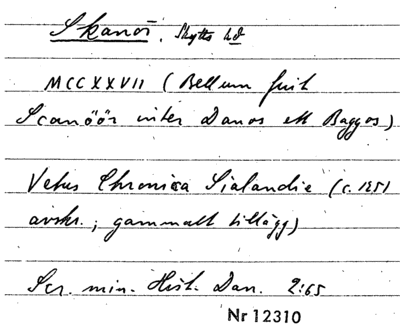 Skanör, Skytts hd
MCCXXVII (Bellum fuit
Scanöör inter Danos et Baggos)
Vetus Chronica Sialandie (c. 1251
avskr.; gammalt tillägg)
Scr. min. Hist. Dan. 2:65
Nr 12310